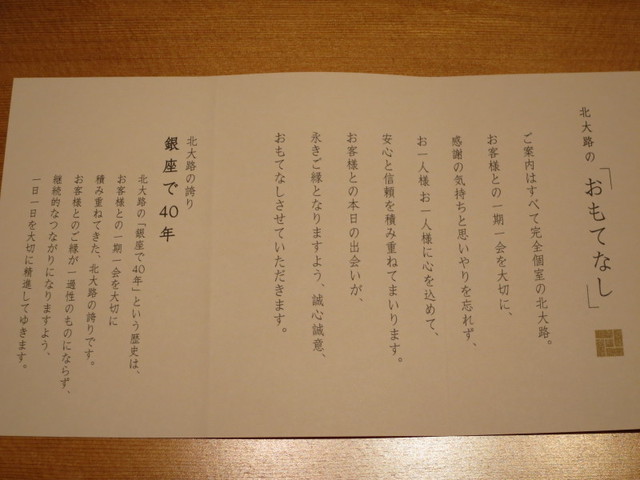 北大路の「おもてなし」
ご案内はすべて完全個室の北大路。
お客様との一期一会を大切に、
感謝の気持ちと思いやりを忘れず、
お一人様 お一人様に心を込めて、
安心と信頼を積み重ねてまいります。
お客様との本日の出会いが、
永きご縁となりますよう、誠心誠意、
おもてなしさせていただきます。
北大路の誇り
銀座で40年
北大路の「銀座で40年」という歴史は、
お客様との一期一会を大切に
積み重ねてきた、北大路の誇りです。
お客様とのご縁が一過性のものにならず、
継続的なつながりになりますよう、
一日一日を大切に精進してゆきます。